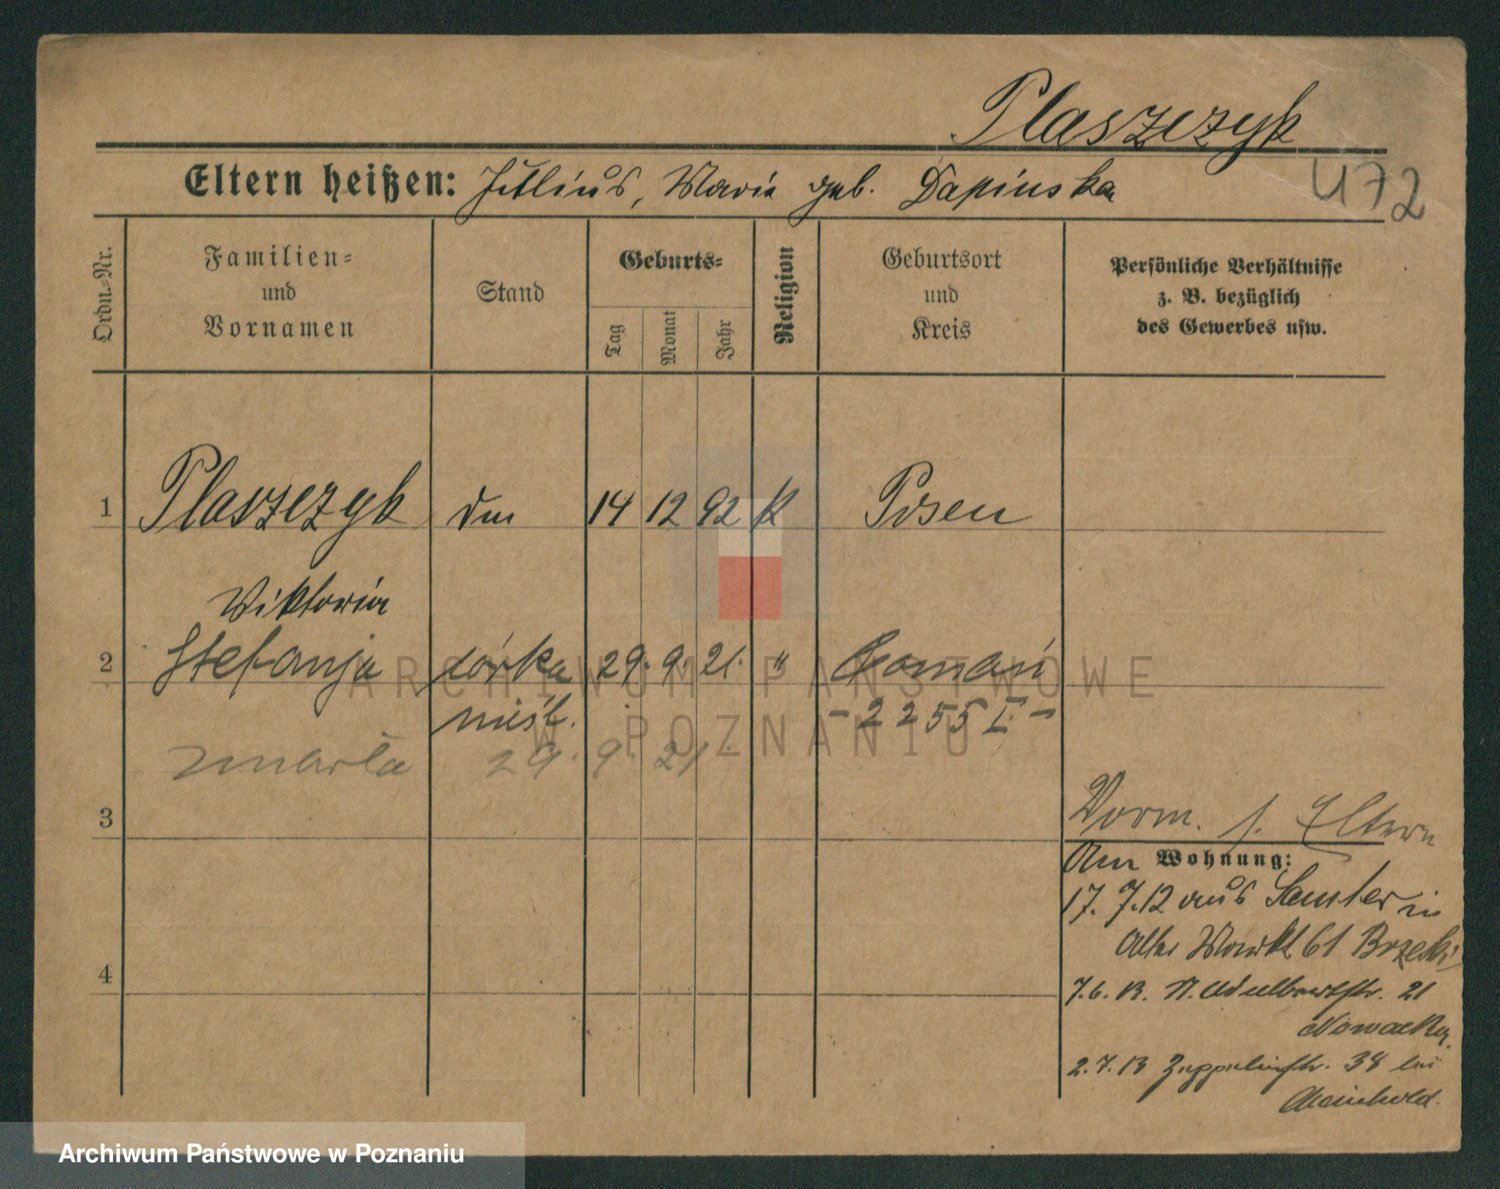 Plaszczyk
Eltern heißen: Julius, Marie geb. Dapinska
472
Ordn.-Nr.
Familien- und Vornamen
Stand
Geburts-
Tag
Monat
Jahr
Religion
Geburtsort und Kreis
Persönliche Verhältnisse
z. B. bezüglich
des Gewerbes usw.
1 Plaszczyk 14 12 92 k Posen
Viktoria
2 Stefanja córka 29. 9. 21. " Poznań
nieśl. - 2255 I -
zmarła 29. 9. 21
3
Vorm. s. Eltern
Am Wohnung:
17. 7.12 aus Samter in
Alter Markt 61 Brzeski
4
7.6.13. N. Adalbertstr. 21
Nowacka.
2.7.13 Zeppelinstr. 38 bei
Meinhold.
ARCHIWUM PAŃSTWOWE
W POZNANIU
Archiwum Państwowe w Poznaniu